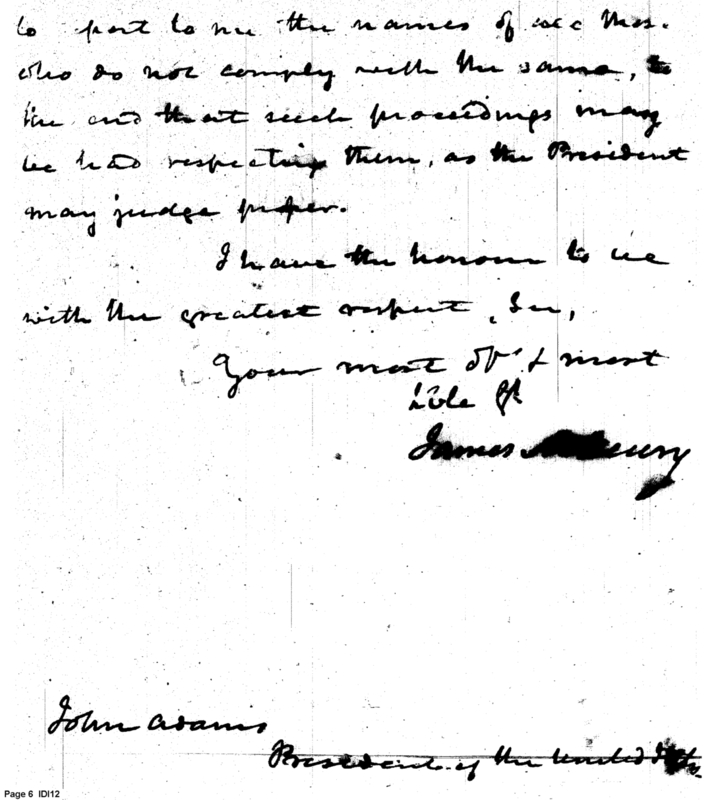 to port to me the names of all those
who do not comply with the same, to
the end that such proceedings may
be had respecting them, as the President
may judge proper.
I have the honour to be
with the greatest respect, Sir,
Your most obt & most
hble St
James McHenry
John Adams
President of the United Sts
Page 6 IDI12